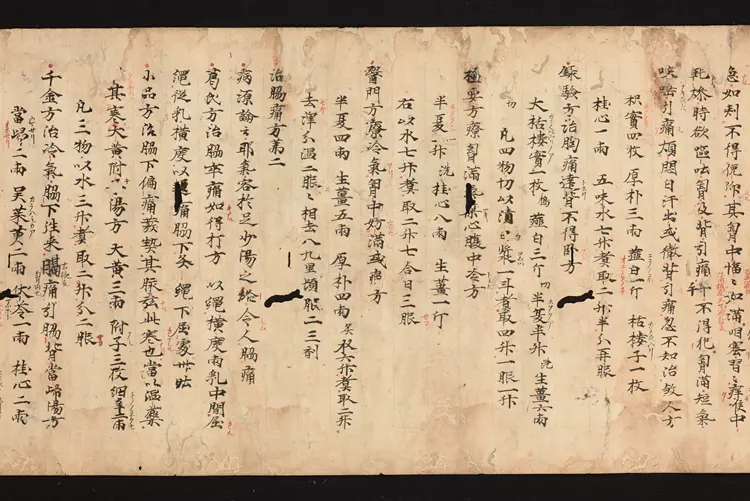 急如刺不得俛仰其胸中愊々如滿咽塞習々痒喉中
乾燥時欲嘔吐胸及背引痛
不得犯胸滿短氣
咳唾引痛煩悶自汗出或徹背引痛忽不知治煞人方
枳實四枚 厚朴三兩 薤白一斤 栝樓子一枚
桂心一兩 五味水七升煮取二升半分再服
錄驗方治胸痛達背不得臥方
大栝樓實一枚 薤白三斤 切 半夏半升 洗 生薑六兩 切
凡四物切以漬漿一斗煮取四升一服一升
極要方療胸滿 心腹中冷方
半夏一升 洗 桂心八兩 生薑一斤
右以水七升煮取二升七合日三服
醫門方療冷氣胸中妨滿或痛方
半夏四兩 生薑五兩 厚朴四兩 炙 水六升煮取二升
去滓分溫二服々相去八九里頃服二三劑
治脇痛方第二
病源論云邪氣客於足少陽之絡令人脇痛
葛氏方治脇卒痛如得打方 以繩橫度兩乳中間屈
繩從乳橫度以 痛脇下灸繩下屈處卅壯
小品方治脇下偏痛發熱其脈弦此寒也當以溫藥
其寒大黃附子湯方 大黃三兩 附子三枚 細辛二兩
凡三物以水三升煮取二升分二服
千金方治冷氣脇下往來 痛引脇背當歸湯方
當歸二兩 吳茱萸二兩 伏苓一兩 桂心二兩